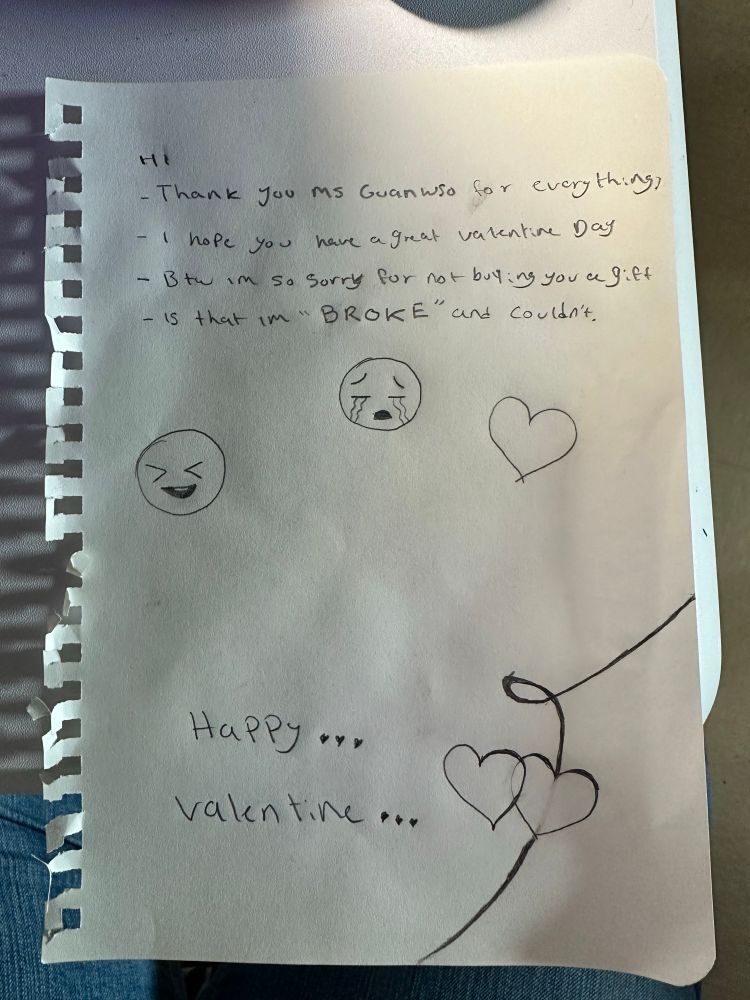 HI
- Thank you ms Guanwso for everything,
- I hope you have a great valentine Day
- Btw im so sorry for not buying you a gift
- is that im "BROKE" and couldn't.
Happy ...
valentine ...